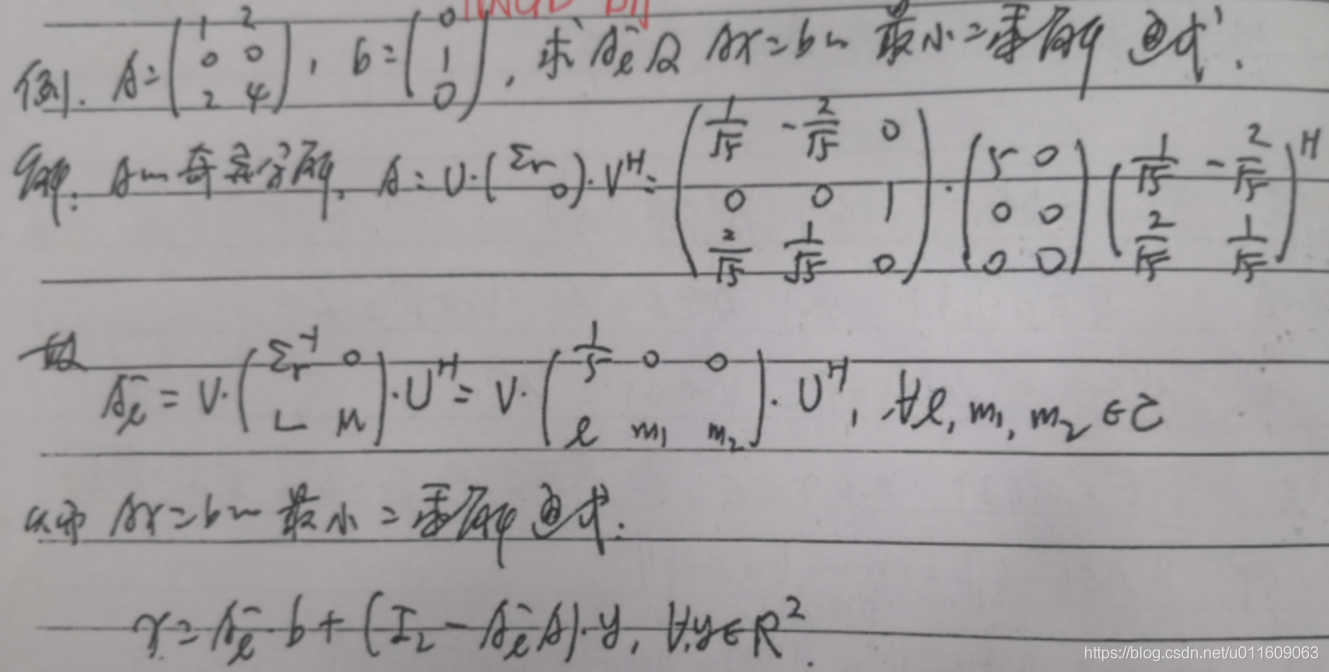 例1. A=(1 2 0 0 2 4), b=(0 1 0), 求 A_l^- 及 Ax=b 最小二乘解通式.
解: A 奇异分解, A=U·(Σr 0)·V^H=(1/√5 -2/√5 0 0 0 1 2/√5 1/√5 0)·(5 0 0 0 0 0)(1/√5 -2/√5 2/√5 1/√5)^H
故
A_l^-=V·(Σr^-1 0 L M)·U^H=V·(1/5 0 0 l m1 m2)·U^H, ∀l, m1, m2∈C
从而 Ax=b 最小二乘解通式:
x=A_l^- b+(I2-A_l^- A)·y, ∀y∈R^2.
https://blog.csdn.net/u011609063